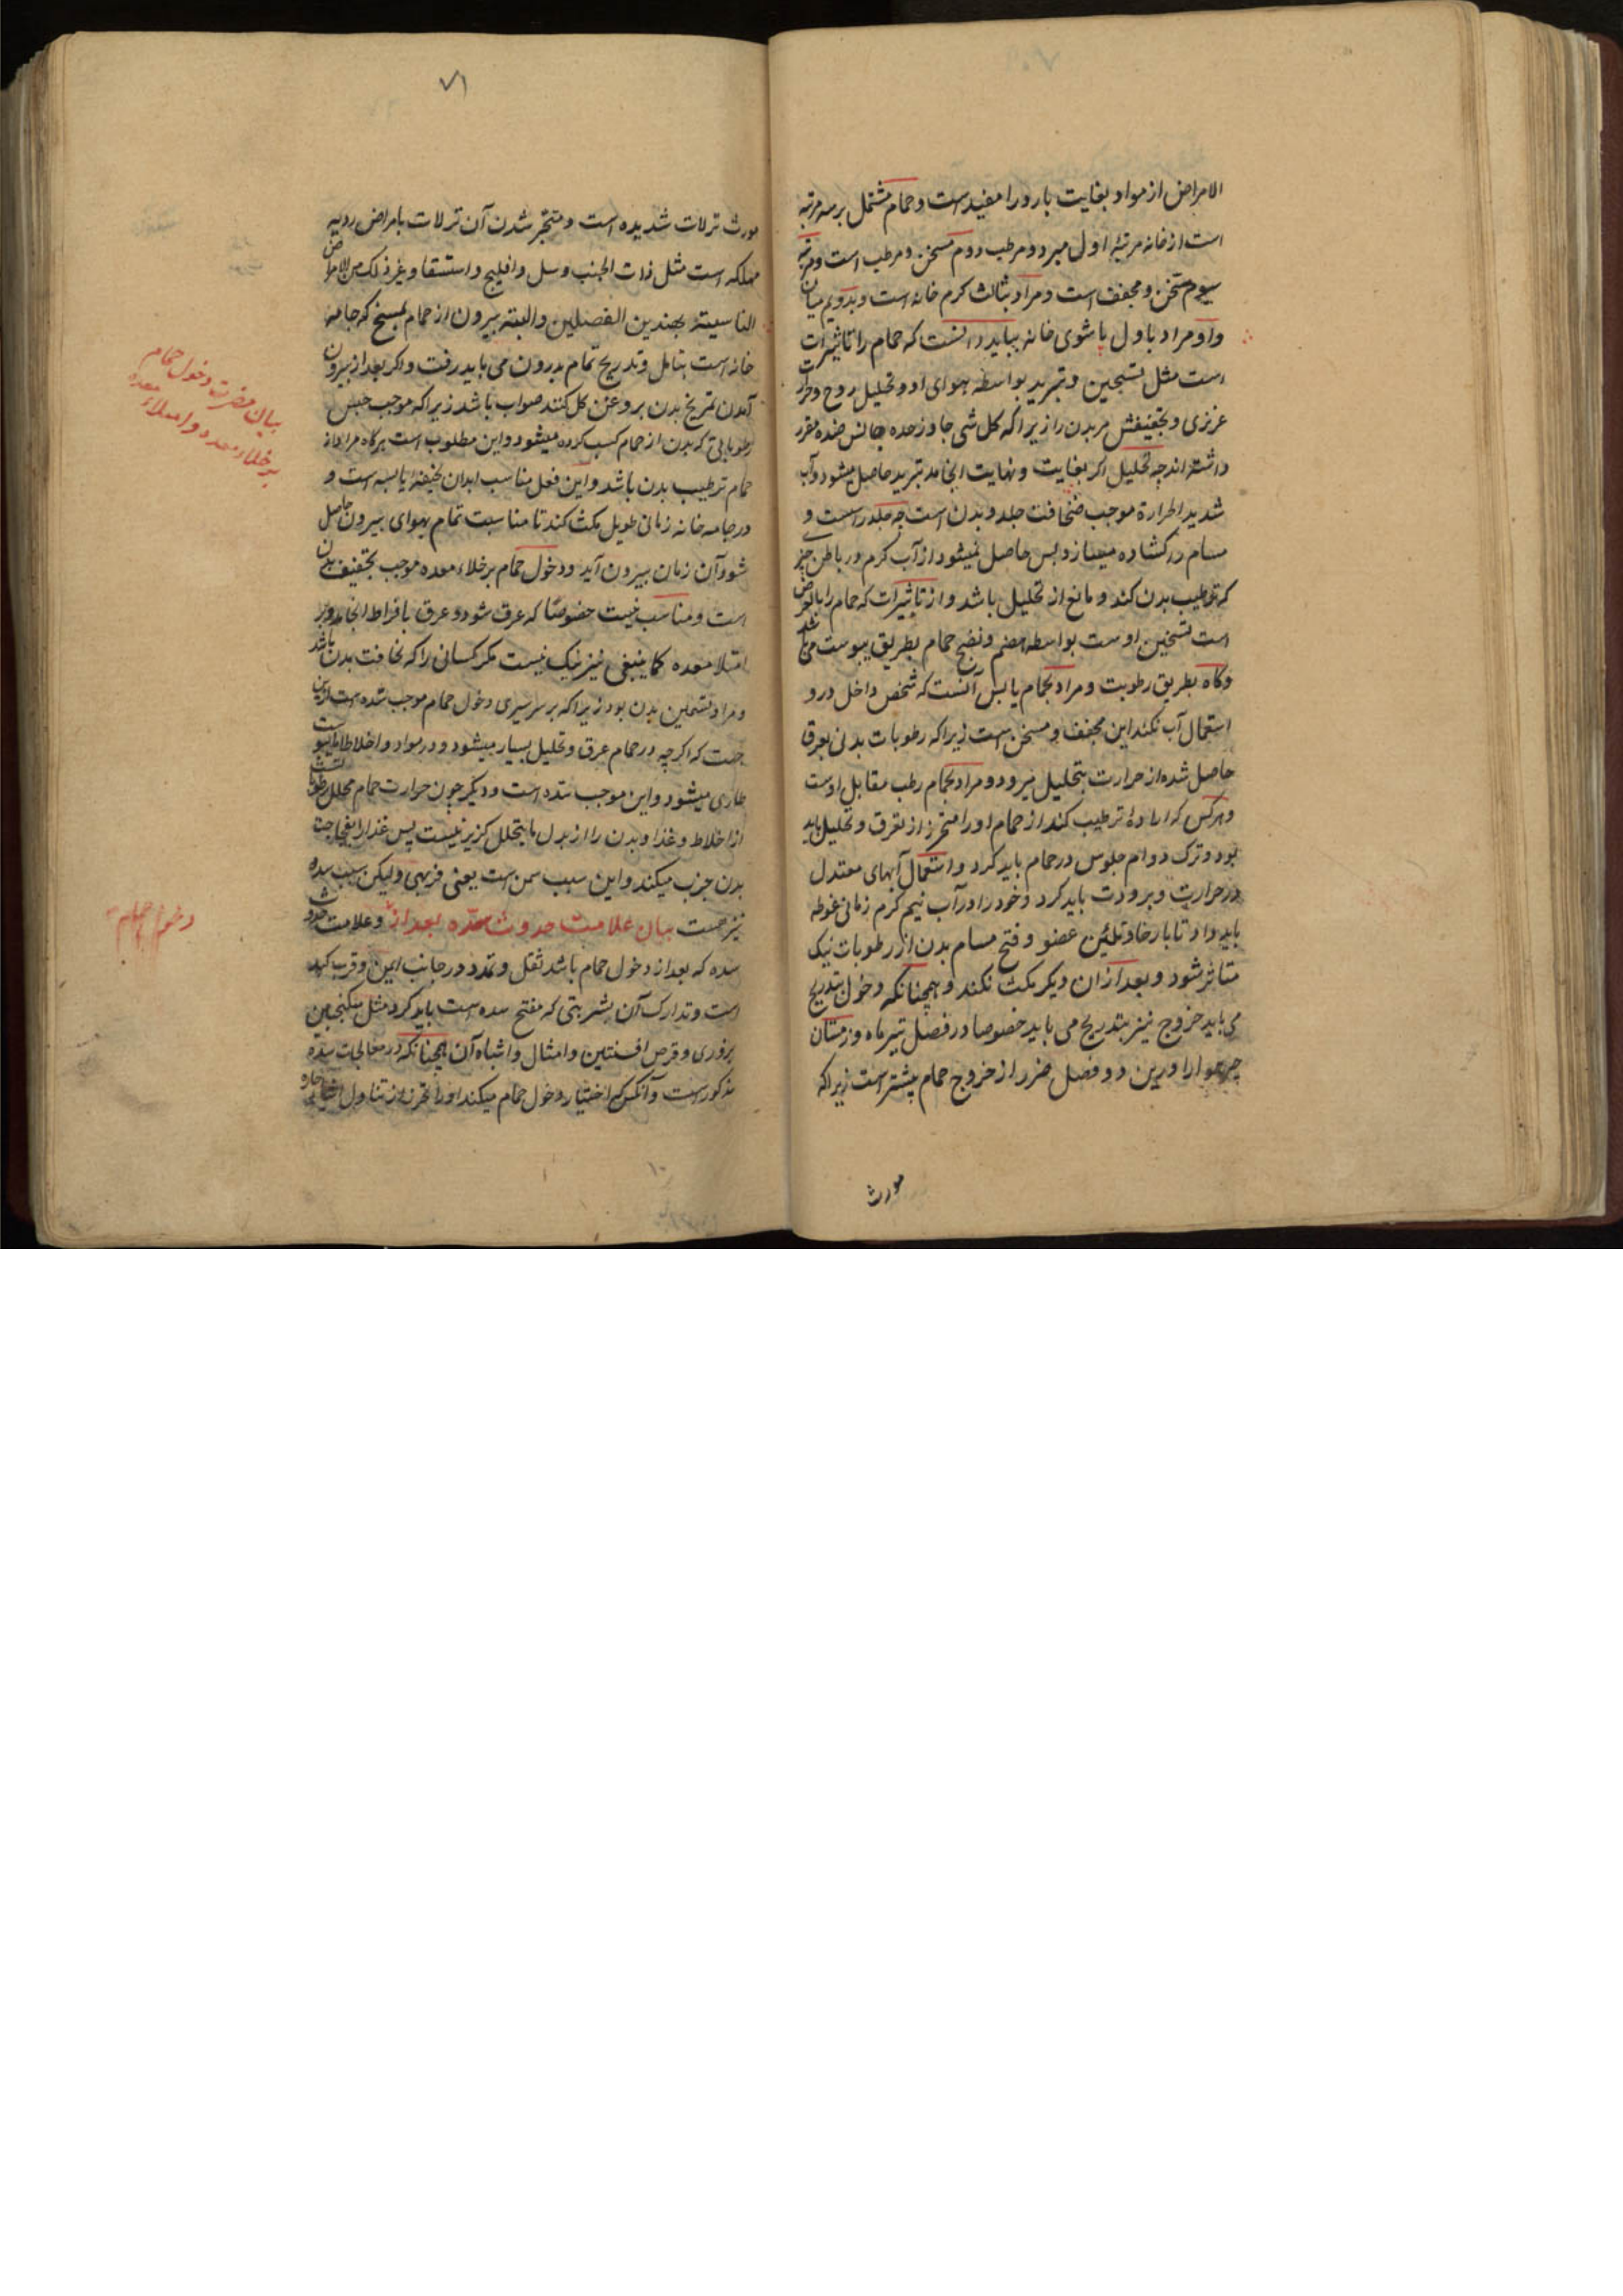 الامراض از مواد بغایت بارد را مفید است و حمام مشتمل بر سه مرتبه
است از خانه مرتبۀ اول مبرد و مرطب دوم مسخن و مرطب است و مرتبه
سیوم مسخن و مجفف است و مراد بثالث کرم خانه است و بدویم میان
و او مراد باول پاشوی خانه بباید دانست که حمام را تاثیرات
است مثل تسخین و تبرید بواسطه هوای او و تحلیل روح و حرارت
غریزی و تجفیفش مر بدن را زیرا که کل شی جاوز حده جانس ضده مقرر
داشته اند چه تحلیل اکر بغایت و نهایت انجامد تبرید حاصل میشود و آب
شدید الحرارة موجب جلد و بدن است چه جلد را است و
مسام را کشاده میسازد بس حاصل نمیشود از آب کرم در باطن چیزی
که ترطیب بدن کند و مانع از تحلیل باشد و از تاثیرات که حمام را بالعرض
است تسخین اوست بواسطه هضم و نضج حمام بطریق یبوست می باشد
و کاه بطریق رطوبت و مراد بحمام یابس آنست که شخص داخل در و
استعمال آب نکند این مجفف و مسخن است زیرا که رطوبات بدنی بعرق
حاصل شده از حرارت بتحلیل میرود و مراد بحمام رطب مقابل اوست
و هرکس که ارادۀ ترطیب کند از حمام او را متحرز از تعرق و تحلیل باید
بود و ترک دوام جلوس در حمام باید کرد و استعمال آبهای معتدل
در حرارت و برودت باید کرد و خود را در آب نیم کرم زمانی غوطه
باید داد تا بارخا و تلئین عضو و فتح مسام بدن از رطوبات نیک
متاثر شود و بعد از آن دیکر مکث نکند و همچنانکه دخول بتدریج
می باید خروج نیز بتدریج می باید خصوصا در فصل تیرماه و زمستان
چه هوا را درین دو فصل ضرر از خروج حمام بیشتر است زیرا که
مورث
۷۱
مورث نزلات شدیده است و منجر شدن آن نزلات بامراض ردیه
مهلکه است مثل ذات الجنب و سل و افلیج و استسقا و غیر ذلک من الامراض
بهذین الفصلین و البته بیرون از حمام که جامه
خانه است بتامل و تدریج تمام بدرون می باید رفت و اکر بعد از بیرون
آمدن تمریخ بدن بروغن کل کنند صواب باشد زیرا که موجب حبس
رطوباتی که بدن از حمام کسب کرده میشود و این مطلوب است هرکاه مراد از
حمام ترطیب بدن باشد و این فعل مناسب ابدان نحیفۀ یابسه است و
در جامه خانه زمانی طویل مکث کند تا مناسبت تمام بهوای بیرون حاصل
شود آن زمان بیرون آید و دخول حمام بر خلاء معده موجب تجفیف بدن
است و مناسب نیست خصوصًا که عرق شود و عرق بافراط انجامد و بر
امتلا معده کما ینبغی نیز نیک نیست مکر کسانی را که نحافت بدن باشد
و مراد تسمین بدن بود زیرا که بر سر سیری دخول حمام موجب سده است ازین
جهت که اکرچه در حمام عرق و تحلیل بسیار میشود و در مواد و اخلاط
طاری میشود و این موجب سده است و دیکر چون حرارت حمام محلل رطوبا
از اخلاط و غذا و بدن را از بدل ما یتحلل کزیر نیست پس غذا را
بدن جذب میکند و این سبب سمن است یعنی فربهی و لیکن سبب سده
نیز هست بیان علامت حدوث سده بعد از و علامت حدوث
سده که بعد از دخول حمام باشد ثقل و تمدد در جانب ایمن و قریب کبد
است و تدارک آن بشربتی که مفتح سده است باید کرد مثل سکنجبین
بزوری و قرص افسنتین و امثال و اشباه آن همچنانکه در معالجات سده
مذکور است و آنکس که اختیار دخول حمام میکند او را تحرز از تناول
بیان مضرت دخول حمام
بر خلاء معده و امتلاء معده
دخول حمام